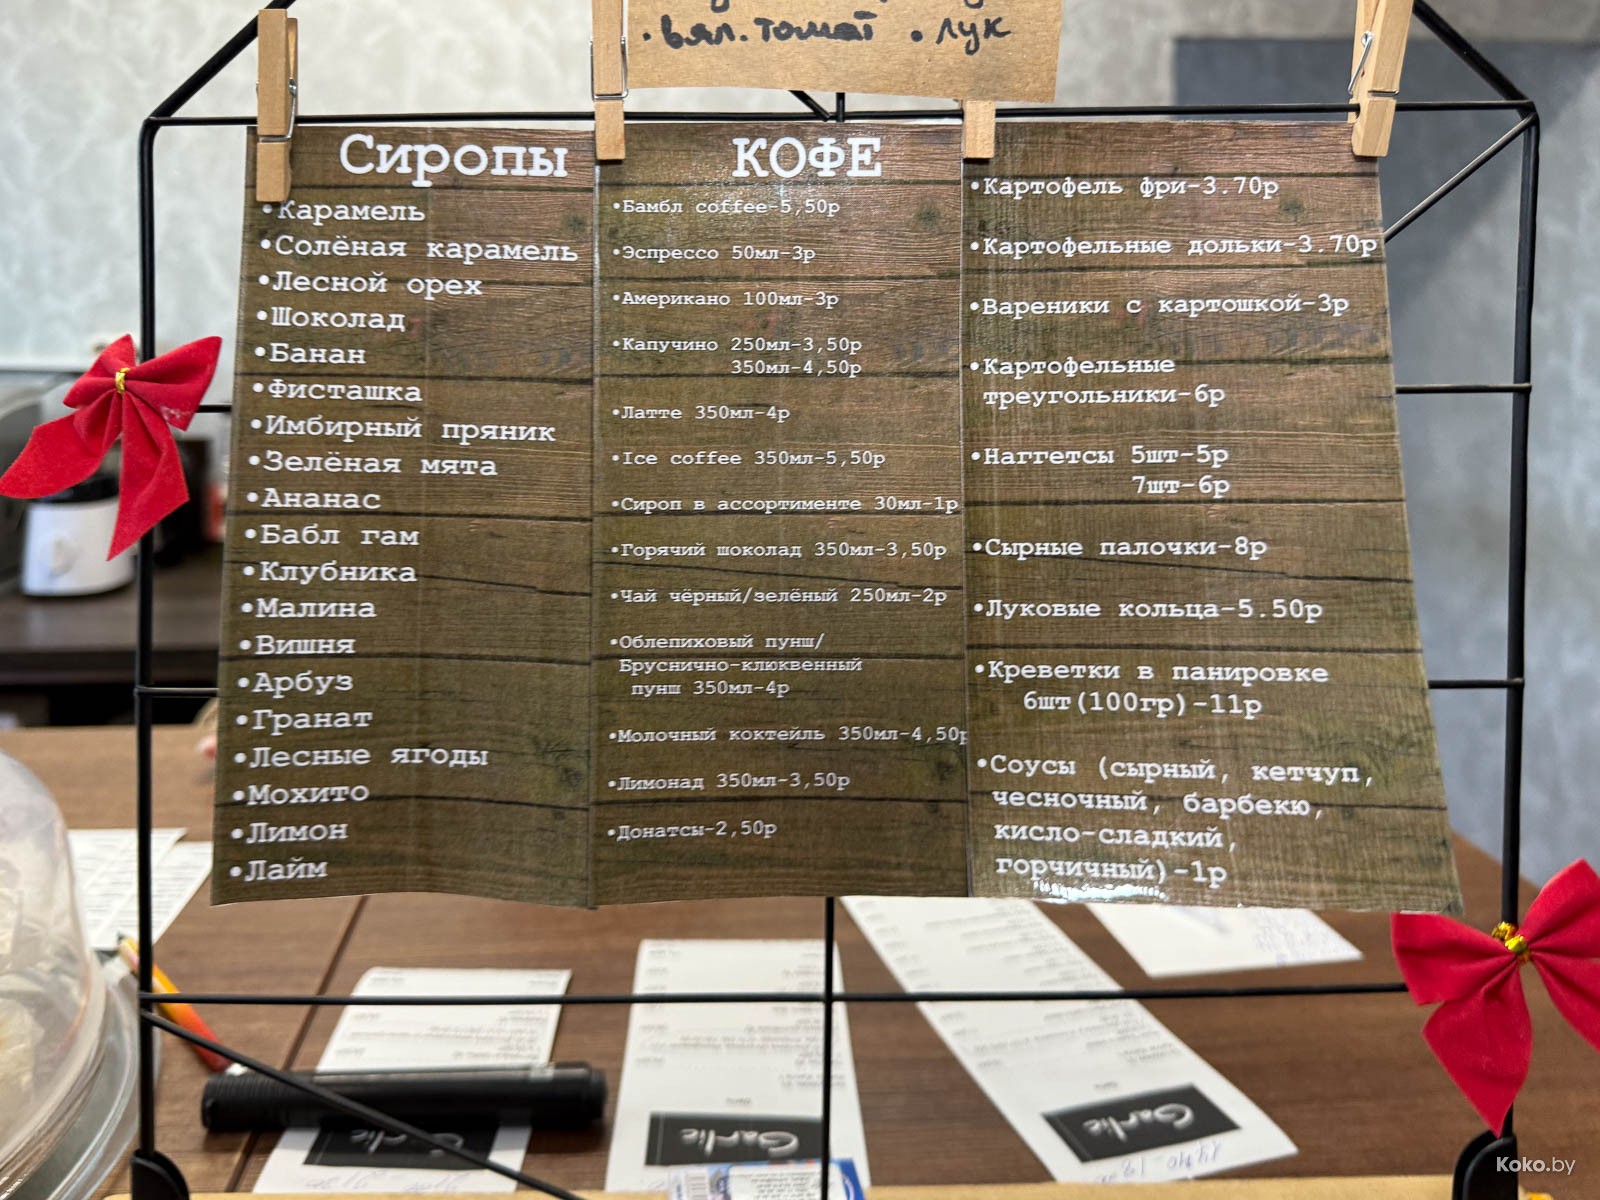 • вял. томат • лук
Сиропы
•Карамель
•Солёная карамель
•Лесной орех
•Шоколад
•Банан
•Фисташка
•Имбирный пряник
•Зелёная мята
•Ананас
•Бабл гам
•Клубника
•Малина
•Вишня
•Арбуз
•Гранат
•Лесные ягоды
•Мохито
•Лимон
•Лайм
КОФЕ
•Бамбл coffee-5,50р
•Эспрессо 50мл-3р
•Американо 100мл-3р
•Капучино 250мл-3,50р
350мл-4,50р
•Латте 350мл-4р
•Ice coffee 350мл-5,50р
•Сироп в ассортименте 30мл-1р
•Горячий шоколад 350мл-3,50р
•Чай чёрный/зелёный 250мл-2р
•Облепиховый пунш/
Бруснично-клюквенный
пунш 350мл-4р
•Молочный коктейль 350мл-4,50р
•Лимонад 350мл-3,50р
•Донатсы-2,50р
•Картофель фри-3.70р
•Картофельные дольки-3.70р
•Вареники с картошкой-3р
•Картофельные
треугольники-6р
•Наггетсы 5шт-5р
7шт-6р
•Сырные палочки-8р
•Луковые кольца-5.50р
•Креветки в панировке
6шт(100гр)-11р
•Соусы (сырный, кетчуп,
чесночный, барбекю,
кисло-сладкий,
горчичный)-1р
Garlic
Garlic
Garlic
Koko.by